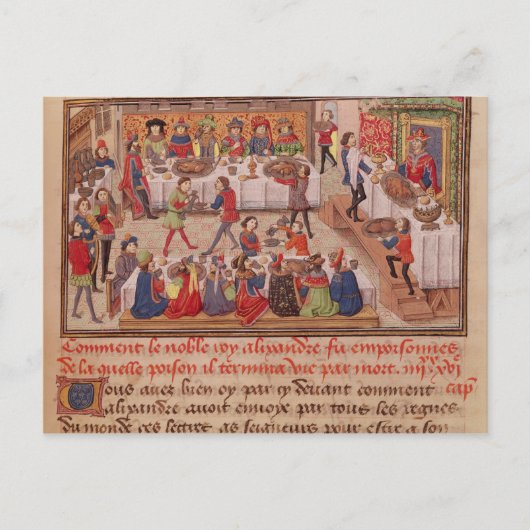 Comment le noble roy alixandre fu empoisonnes
de la quelle poison il termina vie par mort. iiijxx xvje
Vous avez bien oy par cy devant comment capl
alixandre avoit envoye par tous les regnes
du monde ces lettres as seigneurs pour estre a son